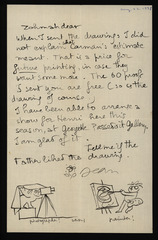 When I sent the drawings I did
not explain Carman's estimate
meant. That is a price for
future painting, in case they
want some more. The 60 proof
I sent you are free (so is the
drawing of course
I have been able to arrent a
show for Henri here this
season, at George Prescott Gallery,
I am glad of it.
Tell me if the
Father liked the drawing.
photographer!
painter!